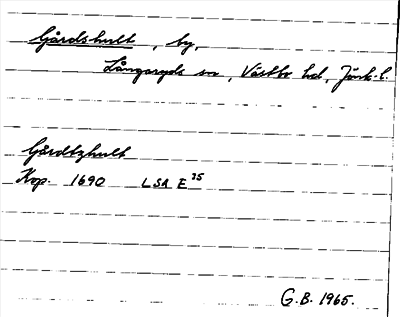 Gårdshult, by,
Långaryds sn, Västbo hd, Jönk. l.
Gårdtzhult
Kop. 1690 LSA E 75
G.B. 1965.